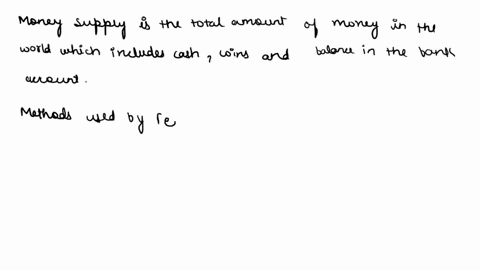 Money supply is the total amount of money in the
world which includes cash, coins and balance in the bank
account.
Methods used by re